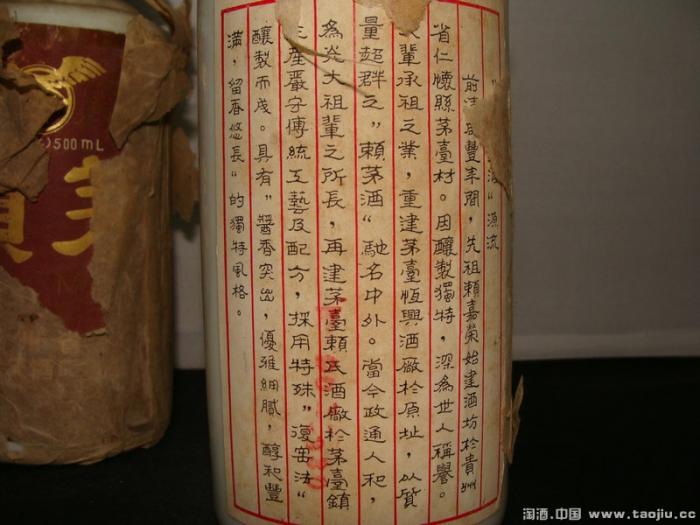 酒”源流
豐年間，先祖賴嘉榮始建酒坊於貴州
省仁懷縣茅臺材。因釀製獨特，深為世人稱譽。
輩承祖之業，重建茅臺恆興酒廠於原址，以質
量超群之”賴茅酒“馳名中外。當今政通人和，
為炎大祖輩之所長，再建茅臺賴氏酒廠於茅臺鎮
產嚴守傳統工藝及配方，採用特殊”復窖法“
釀製而成。具有”醬香突出，優雅細膩，醇和豐
滿，留香悠長“的獨特風格。
500mL
淘酒.中国 www.taojiu.cc